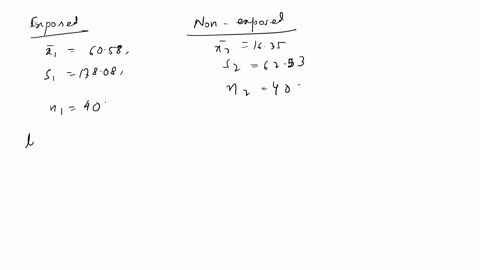 Exposed
x̄₁ = 60.58,
s₁ = 138.08,
n₁ = 40
Non - exposed
x̄₂ = 16.35
s₂ = 62.53
n₂ = 40